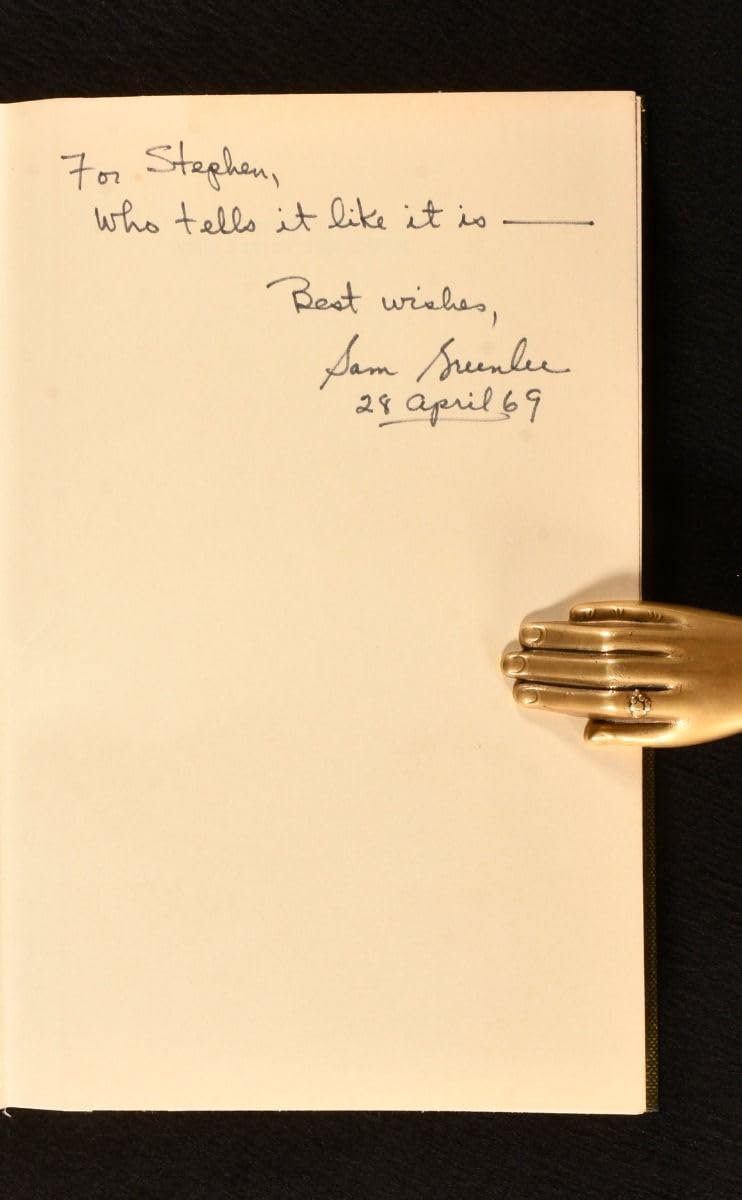 For Stephen,
Who tells it like it is —
Best wishes,
Sam Greenlee
28 April 69